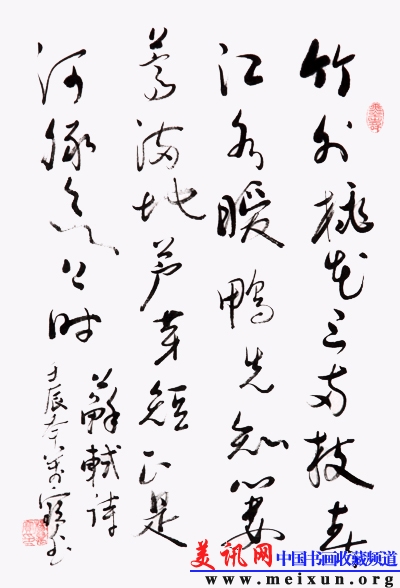 竹外桃花三两枝春
江水暖鴨先知蒌
蒿满地芦芽短正是
河豚欲上时
蘇軾詩
壬辰春
美讯网 中国书画收藏频道
www.meixun.org